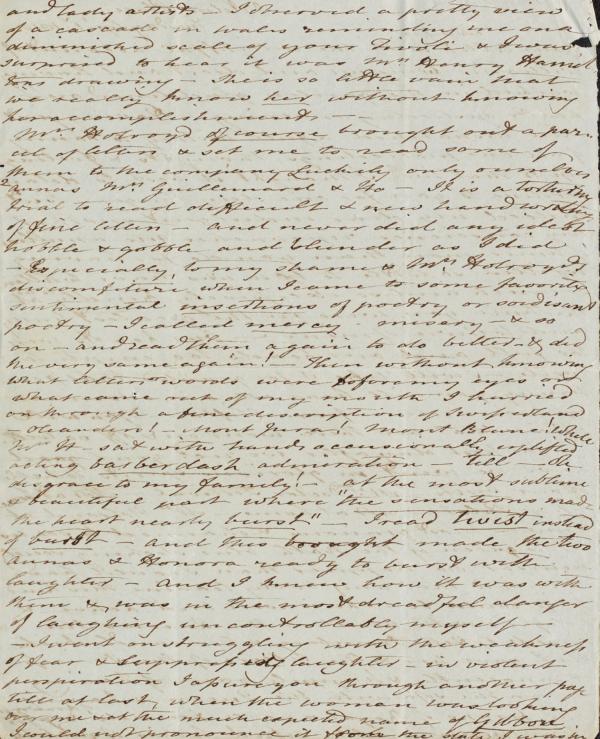 and lady artists - I observed a pretty view
of a cascade in wales reminding me on a
diminished scale of your Tivoli & I was
surprised to hear it was Mrs Henry Hamil
tons drawing - she is so little vain that
we really know her without knowing
her accomplishments -
Mrs Holroyd of course brought out a par-
cel of letters & set me to read some of
them to the company Luckily only ourselves
2 annas Mrs Guillemard & Ho - It is a
trial to read difficult & new handwriting
of fine letters - and never did any idiot
hobble & gobble and blunder as I did
- Especially, to my shame & Mrs Holroyd's
discomfiture when I came to some favorite
sentimental insertions of poetry or soidisant
poetry - I called mercy - misery - & so
on - and read them again to do better - & did
the very same again! - Then without knowing
what letters or words were before my eyes or
what came out of my mouth I hurried
on through a fine description of Switzerland
- Oleanders! - Mont Jura! Mont Blanc! while
Mrs H - sat with hands occasionally uplifted
acting balderdash admiration - till - oh
disgrace to my family! - at the most sublime
& beautiful part where "the sensations made
the heart nearly burst" - I read twist instead
of burst - and this brought made the two
annas & Honora ready to burst with
laughter - and I knew how it was with
them & was in the most dreadful danger
of laughing uncontrollably myself -
- I went on struggling with the weakness
of fear & suppressed laughter - in violent
perspiration I through another page
till at last, when the woman was looking
over me & at the much expected name of Gibbon
I could not pronounce it the I was in